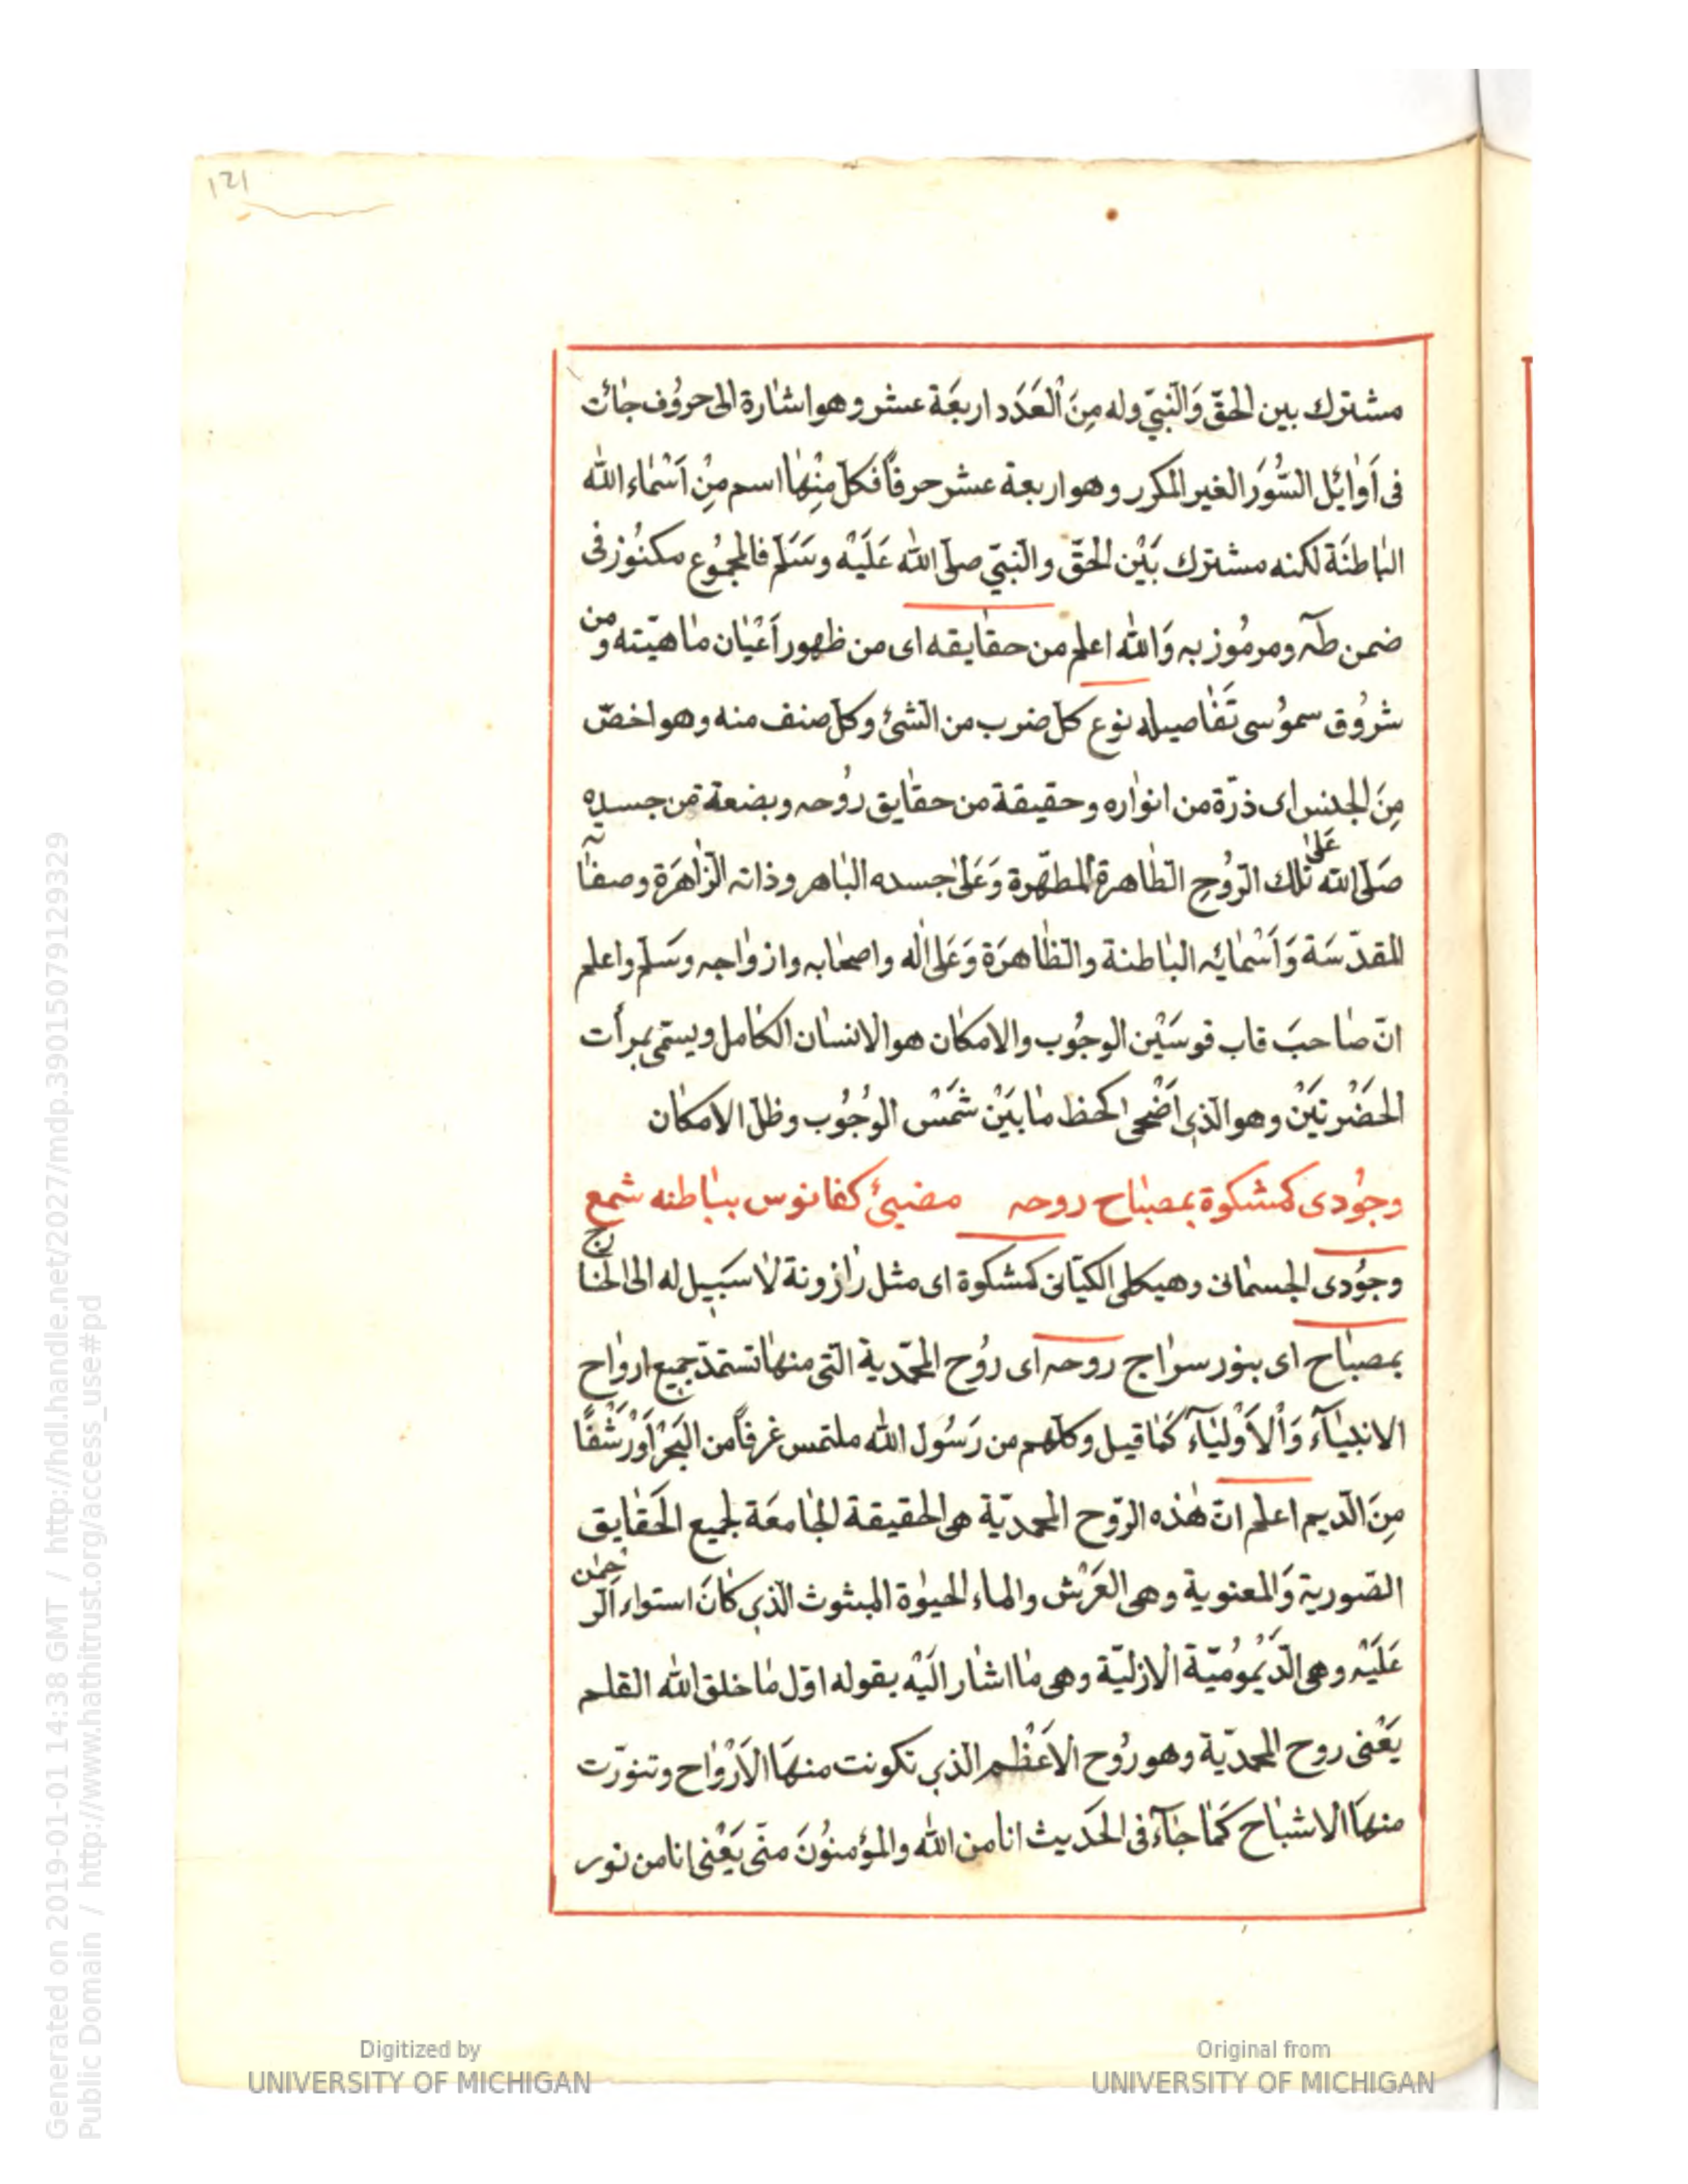 121
مشترك بين الحقّ وَالنّبيّ وله مِنَ الْعَدَد اربعَة عشر وهو اشارة الى حروُف جائت
فى اَوائِل السُّوَر الغير المكرر وهو اربعة عشر حرفاً فكلّ مِنْها اسم مِنْ اَسْماء الله
الباطنَة لكنه مشترك بَيْن الحَقّ والنّبيّ صلّى الله عَلَيْه وسَلّم فالمجمُوع مكنوُز فى
ضمن طٰه ومرموُز به وَالله اعلم من حقايقه اى من ظهور اَعْيان ماهيّته ومن
شروُق سموُسى تَفاصيله نوع كلّ ضرب من الشئ وكلّ صنف منه وهو اخصّ
مِنَ الجنس اى ذرّة من انواره وحقيقة من حقايق روُحه وبضعة من جسده
صَلّى الله عَلى تلك الرّوُحِ الطّاهرة المطهّرة وَعَلى جسده الباهر وذاته الزّاهرَة وصفاته
المقدّسَة وَاَسْمائه الباطنة والظّاهرَة وَعَلى اٰله واصحابه وازواجه وسَلّم واعلم
انّ صاحبَ قاب قوسَيْن الوجُوب والامكان هو الانسان الكامل ويسمّى بمرأت
الحَضْرتَيْن وهو الذى اَضْحى كخط ما بَيْن شَمْس الوُجُوب وظلّ الامكان
وجوُدى كمشكوة بمصباح روحه مضيئ كفانوس بباطنه شمع
وجوُدى الجسمانى وهيكلى الكيّانى كمشكوة اى مثل رازونة لا سَبيل له الى الخارج
بمصباح اى بنور سراج روحه اى روُح المحمّدية الّتى منها تستمدّ جميع ارواح
الانبياۤء وَالْاَوْلياۤء كَما قيل وكلّهم من رَسُول الله ملتمس غرفاً من البَحْر اَوْ رَشْفًا
مِنَ الدّيم اعلم انّ هٰذه الرّوح المحمديّة هى الحقيقة الجامعَة لجميع الحَقايق
الصّورية وَالمعنوية وهى العَرْش والماء الحيوٰة المبثوث الّذى كانَ استواء الرّحمٰن
عَلَيْه وهى الدّيْموُميّة الازليّة وهى ما اشار الَيْه بقوله اوّل ما خلق الله القلم
يَعْنى روح المحمديّة وهو روُح الاَعْظم الّذى تكونت منهَا الاَرْواح وتنوّرت
منهَا الاشباح كَما جاۤء فى الحَديث انا من الله والمؤمنوُنَ منّى يَعْنى انا من نور
Generated on 2019-01-01 14:38 GMT / http://hdl.handle.net/2027/mdp.39015079129329
Public Domain / http://www.hathitrust.org/access_use#pd
Digitized by
UNIVERSITY OF MICHIGAN
Original from
UNIVERSITY OF MICHIGAN